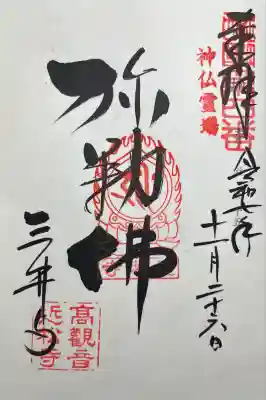 奉拝
神仏霊場
令和七年
十一月二十六日
弥勒佛
三井寺
高觀音
近松寺